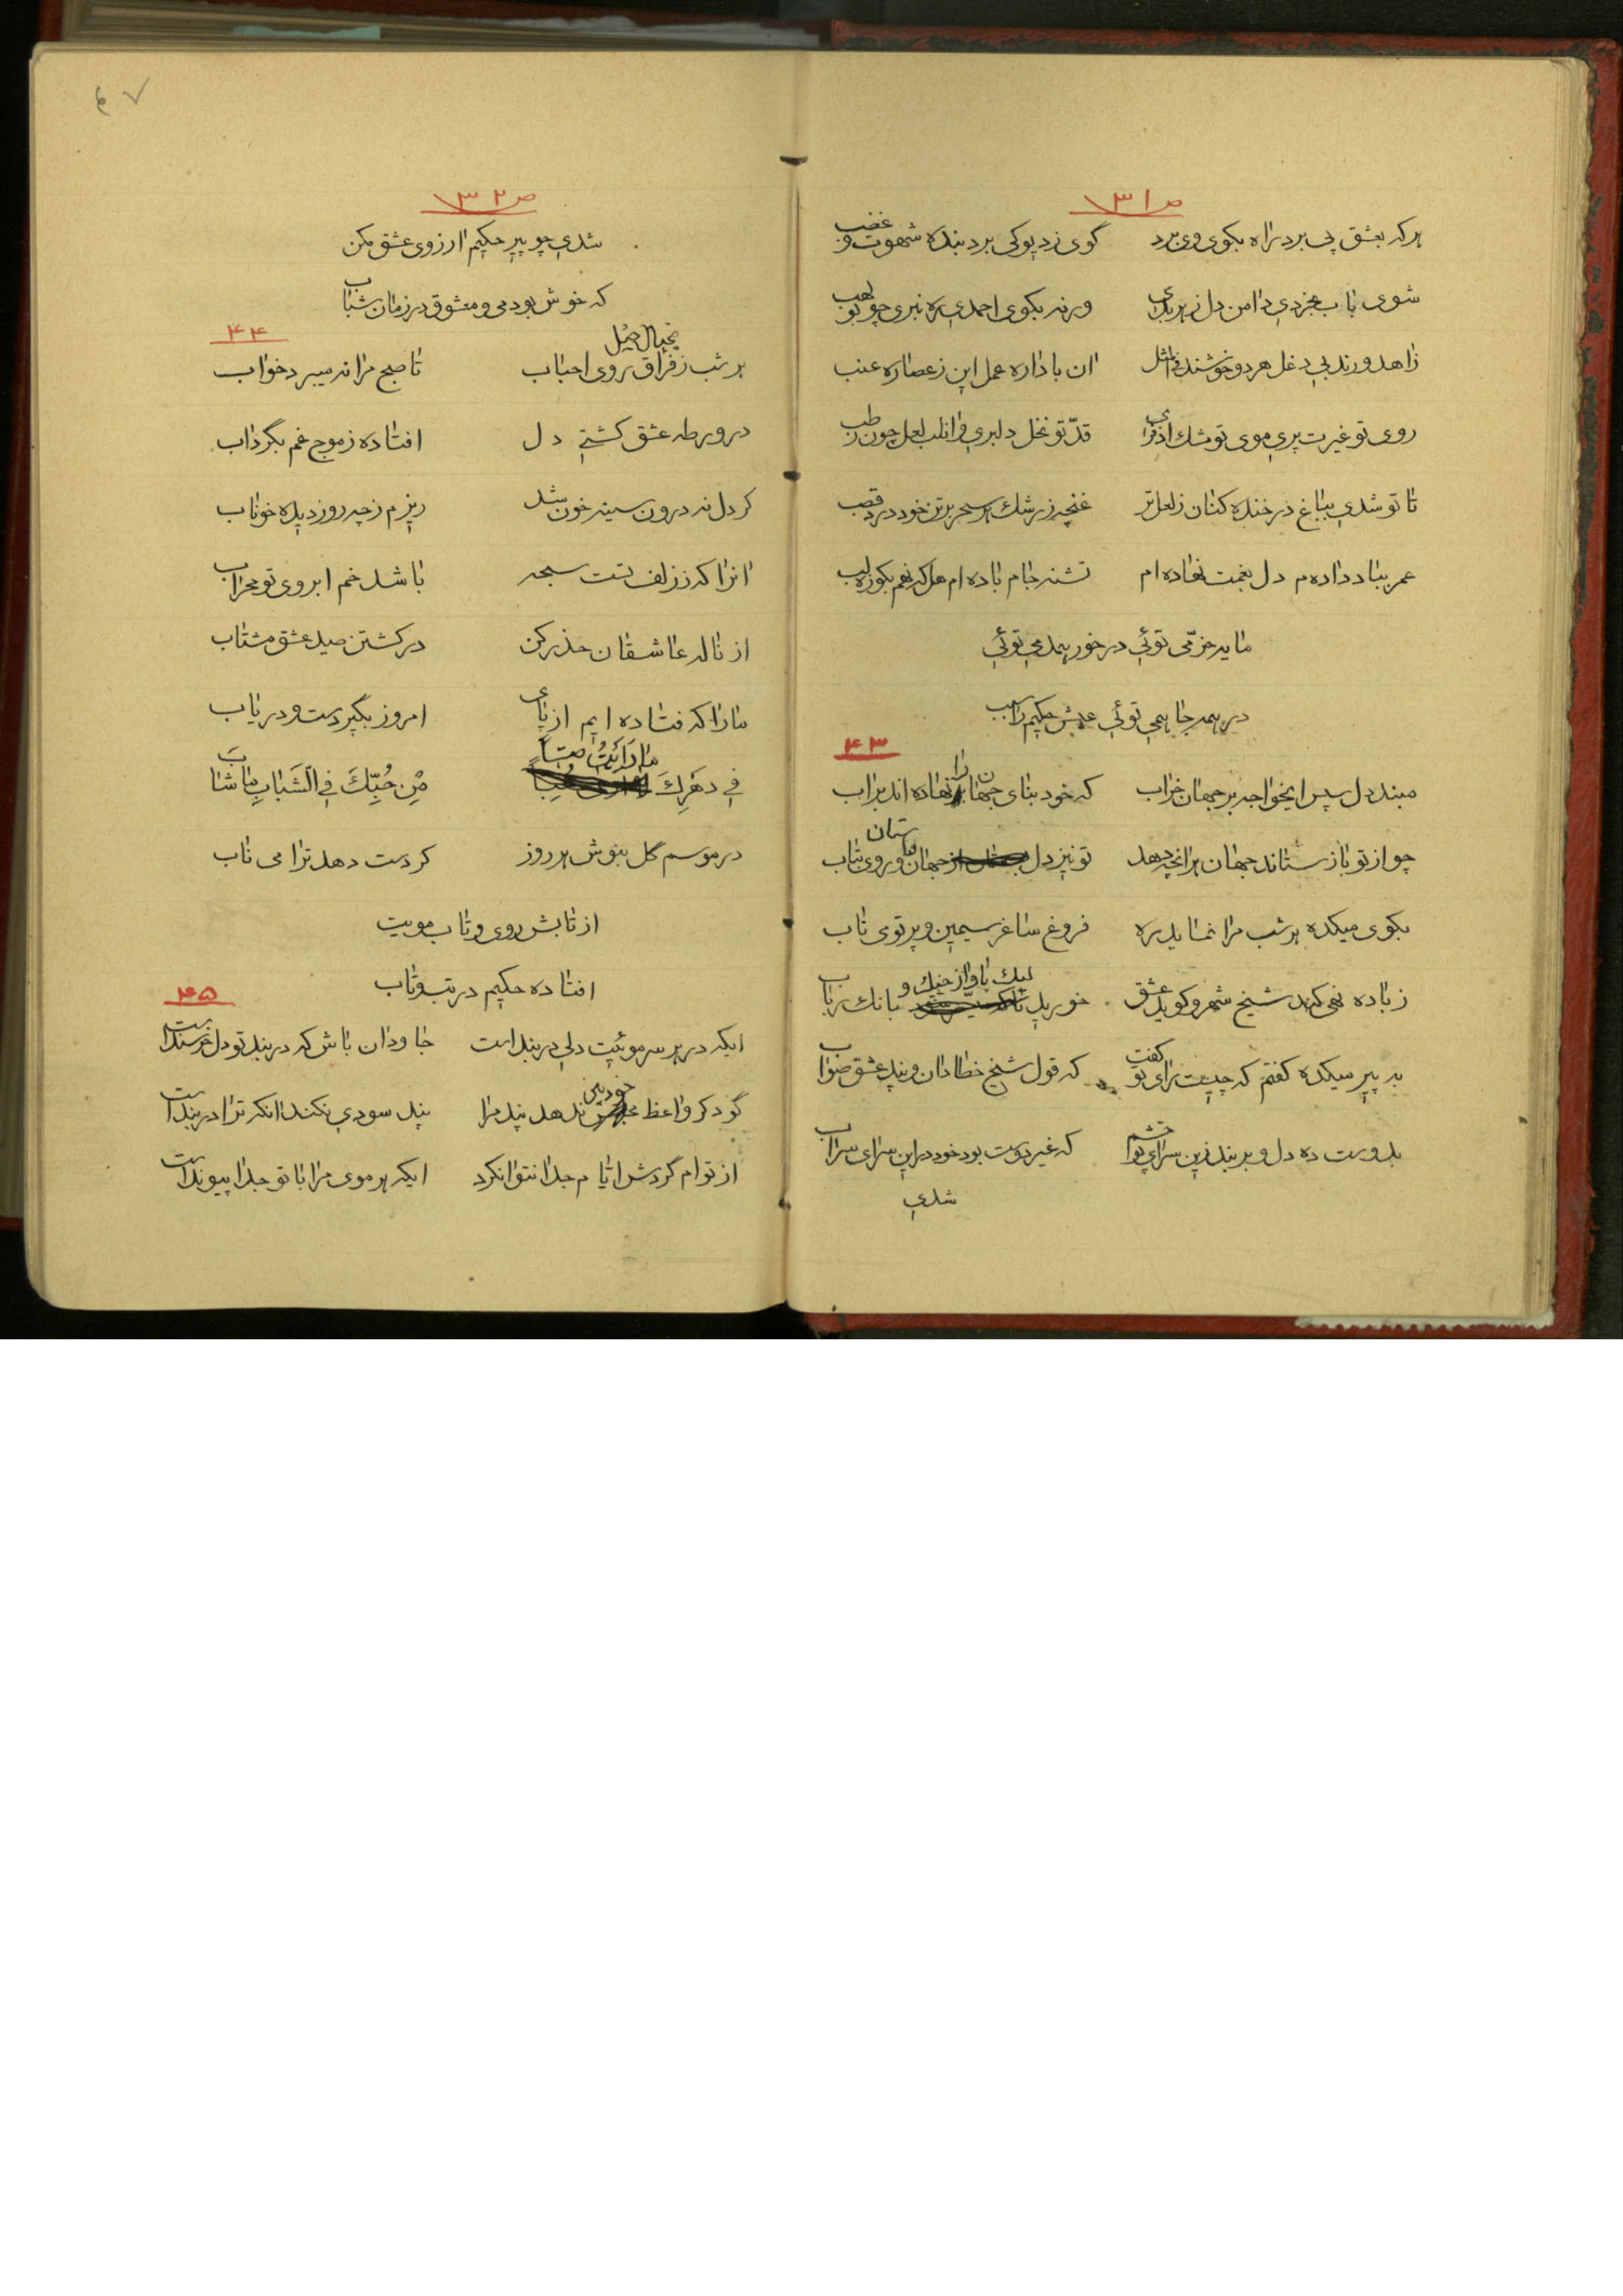 ص ۳۱
هرکه بعشق پی برد راه بکوی وی برد گوی زد پوکی برد بنده شهوت و غضب
شوی بآب بیخردی دامن دل زهر بدی ورنه بکوی احمدی ره نبری چو بو لهب
زاهد و رند بی دغل هر دو خوشند فی المثل ان باداره عمل این زعصاره عنب
روی تو غیرت پری موی تو مشک اذفری قدّ تو نخل دلبری لعل چون رطب
تا تو شدی بباغ در خنده کنان زلعل تر غنچه زرشک هر سحر برتن خود درد قصب
عمر بباد داده‌ام دل بغمت نهاده‌ام تشنه جام باده‌ام هل که نهم بکوزه لب
مایه خرّمی توئی درخور همدمی توئی
در همه جا همی توئی عیش حکیم را سبب
۴۳
مبند دل پس ایخواجه بر جهان خراب که خود بنای جهان را نهاده‌اند براب
چو از تو باز ستاند جهان هرانچه دهد تو نیز دل بستان از جهان و روی بتاب
بکوی میکده هر شب مرا نماید ره فروغ ساغر سیمین و پرتو می ناب
ز باده نهی کند شیخ شهر و گوید عشق خورید لیک بآواز چنگ و بانک رباب
به پیر میکده گفتم که چیست رای تو گفت که قول شیخ خطا دان و پند عشق صواب
بدوست ده دل و بربند زین سرای چشم که غیر دوست بود خود دراین سرای سراب
شدی
۴۷
ص ۳۲
شدی چو پیر حکیم ارزوی عشق مکن
که خوش بود می و معشوق در زمان شباب
۴۴
هر شب زفراق روی احباب تا صبح مرا نمیبرد خواب
بخیال جمیل
در ورطه عشق کشتی دل افتاده زموج غم بگرداب
گر دل نه درون سینه خون شد ریزم زچه روز دیده خوناب
انرا که ززلف تست سبحه باشد خم ابروی تو محراب
از ناله عاشقان حذر کن در کشتن صید عشق مشتاب
ما را که فتاده‌ایم از پای امروز بگیر دست و دریاب
فی دهرک ما رایت صبّاً مِن حُبِّکَ فِی الشَّبابِ ما شابَ
در موسم گل بنوش هر روز گر دست دهد ترا می ناب
از تابش روی و تاب مویت
افتاده حکیم در تب و تاب
۴۵
ایکه در هر سر موئیت دلی در بند است جاودان باش که در بند تو دل خرسند است
گو دگر واعظ خودبین ندهد پند مرا پند سودی نکند انکه ترا در بند است
از توام گردش ایام جدا نتوانکرد ایکه هر موی مرا با تو جدا پیوند است